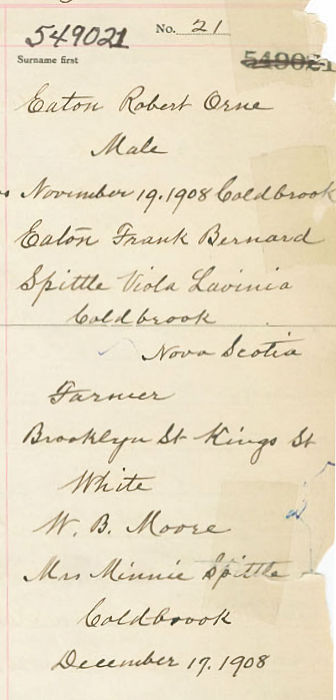 549021 No. 21
Surname first
549021
Eaton Robert Orne
Male
November 19. 1908 Coldbrook
Eaton Frank Bernard
Spittle Viola Lavinia
Coldbrook
Nova Scotia
Farmer
Brooklyn St Kings St
White
W. B. Moore
Mrs Minnie Spittle
Coldbrook
December 17. 1908